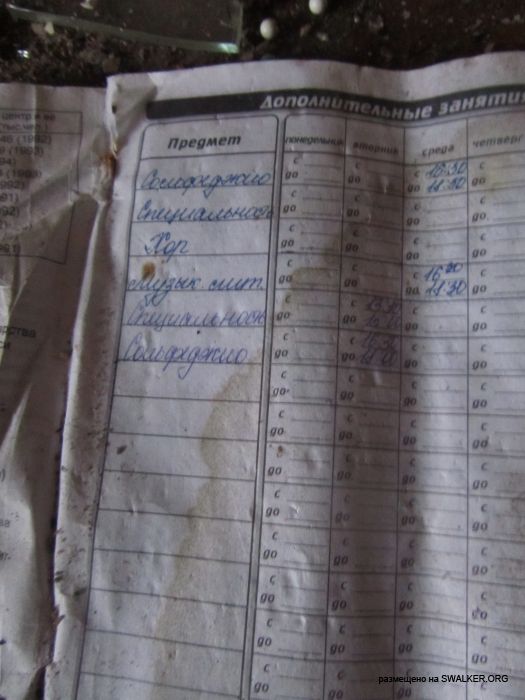 центр и ве
тыс.чел.)
46 (1992)
9 (1993)
94)
(1993)
992)
91)
992)
2)
91)
Дополнительные занятия
Предмет понедельник вторник среда четверг
Сольфеджио с до с до с 16:30 до 11:30 с до
Специальность с до с до с до с до
Хор с до с до с до с до
Музык. лит. с до с до с 16 30 до 11:30 с до
Специальность с до с 15:30 до 16:00 с до с до
Сольфеджио с до с 16:30 до 11:00 с до с до
с до с до с до с до
с до с до с до с до
с до с до с до с до
с до с до с до с до
с до с до с до с до
с до с до с до с до
с до с до с до с до
с до с до с до с до
размещено на SWALKER.ORG